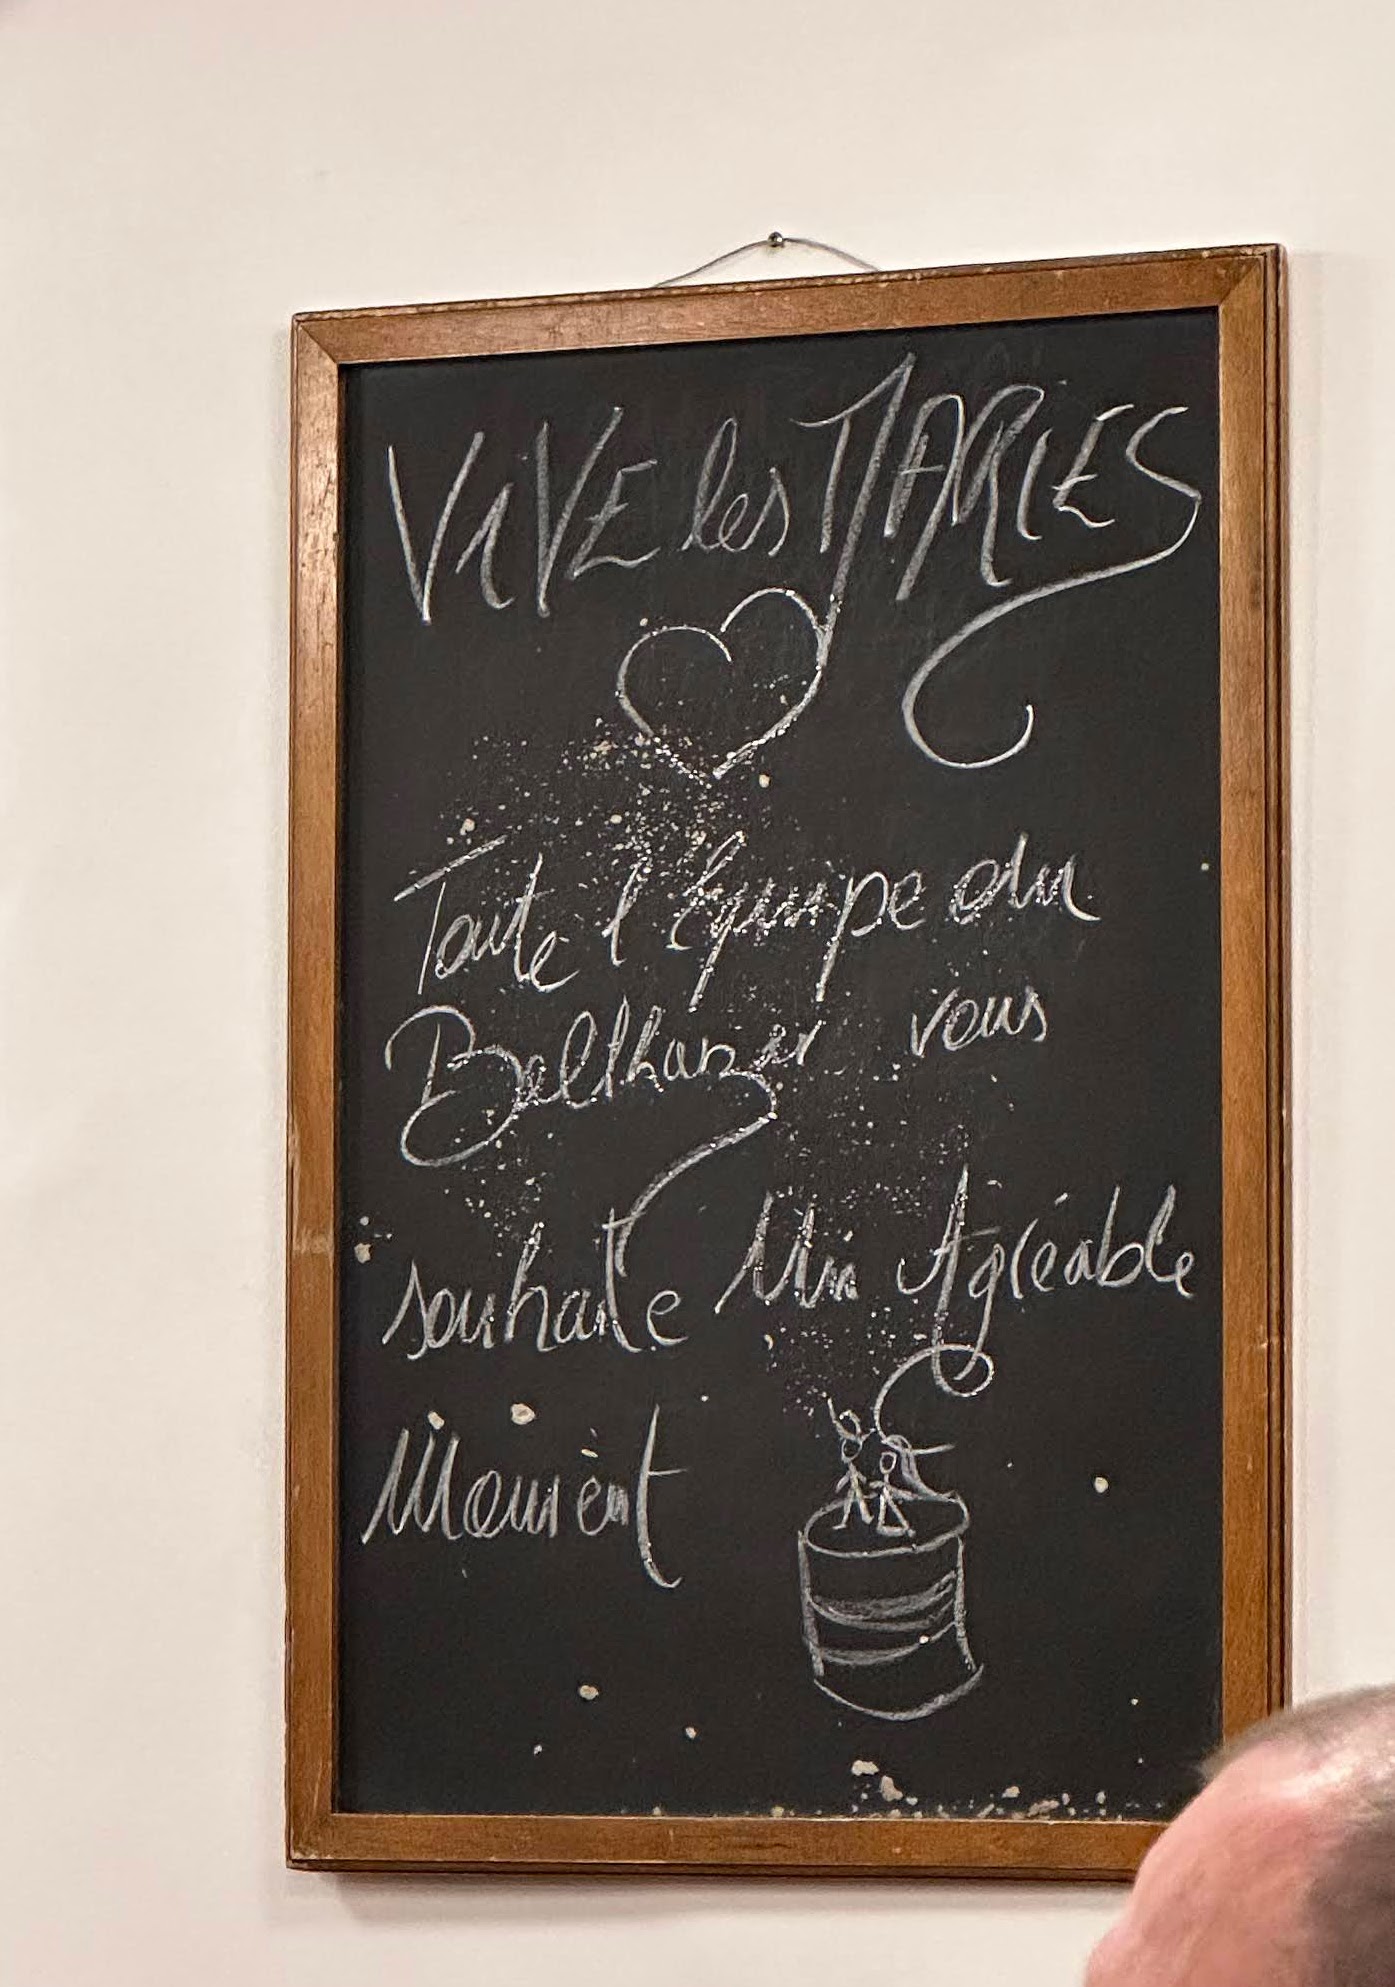 ViVE les MARIES
Toute l'équipe du
Balthazar vous
souhaite Un Agréable
Momènt